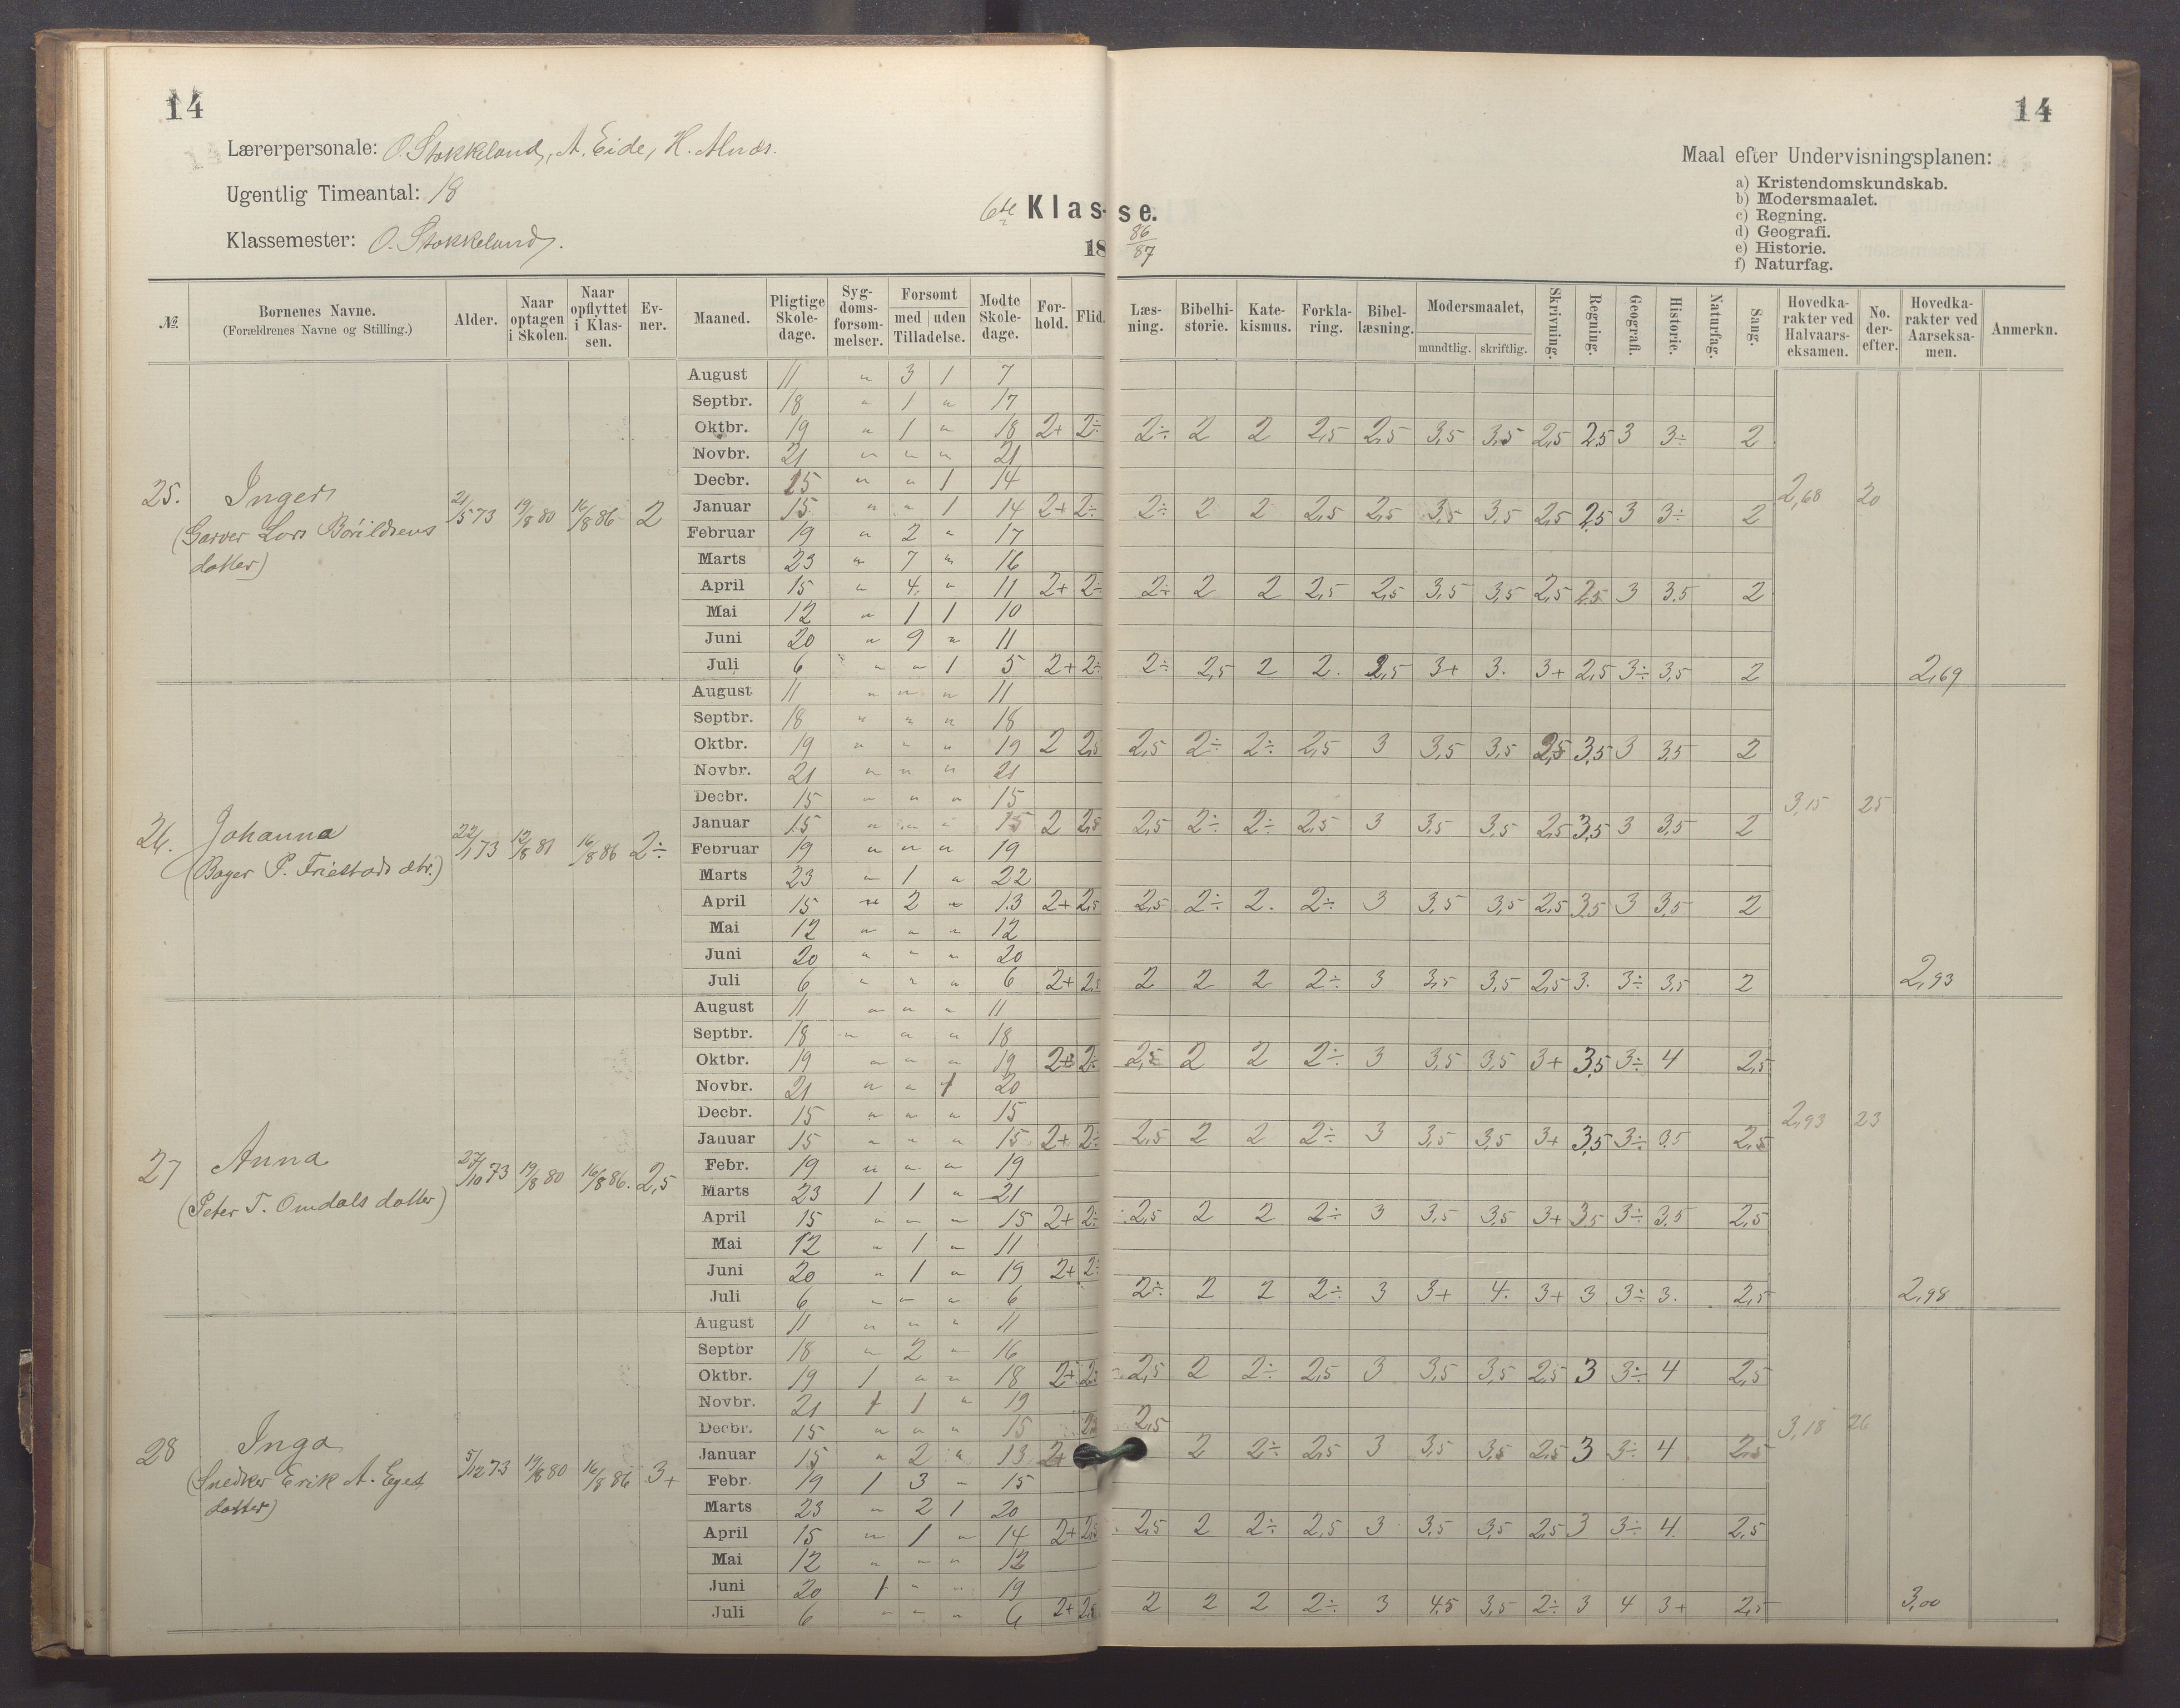 14
14
Lærerpersonale: O. Stokkeland, A. Eide, H. Alnæs.
Ugentlig Timeantal: 18
Klassemester: O. Stokkeland.
6te Klasse.
1886/87
Maal efter Undervisningsplanen:
a) Kristendomskundskab.
b) Modersmaalet.
c) Regning.
d) Geografi.
e) Historie.
f) Naturfag.
№ | Børnenes Navne. (Forældrenes Navne og Stilling.) | Alder. | Naar optagen i Skolen. | Naar opflyttet i Klassen. | Evner. | Maaned. | Pligtige Skoledage. | Sygdomsforsømmelser. | Forsømt med Tilladelse. | uden Tilladelse. | Mødte Skoledage. | Forhold. | Flid. | Læsning. | Bibelhistorie. | Katekismus. | Forklaring. | Bibellæsning. | Modersmaalet, mundtlig. | skriftlig. | Skrivning. | Regning. | Geografi. | Historie. | Naturfag. | Sang. | Hovedkarakter ved Halvaarseksamen. | No. derefter. | Hovedkarakter ved Aarseksamen. | Anmerkn.
25. Inger
(Garver Lars Børildsens
datter)
21/5 73 | 19/8 80 | 16/8 86 | 2
August 11 " 3 1 7
Septbr. 18 " 1 " 17
Oktbr. 19 " 1 " 18 2+ 2÷ 2÷ 2 2 2,5 2,5 3,5 3,5 2,5 2,5 3 3÷ 2
Novbr. 21 " " " 21
Decbr. 15 " " 1 14
Januar 15 " " 1 14 2+ 2÷ 2÷ 2 2 2,5 2,5 3,5 3,5 2,5 2,5 3 3÷ 2
2,68 20
Februar 19 " 2 " 17
Marts 23 " 7 " 16
April 15 " 4 " 11 2+ 2÷ 2÷ 2 2 2,5 2,5 3,5 3,5 2,5 2,5 3 3.5 2
Mai 12 " 1 1 10
Juni 20 " 9 " 11
Juli 6 " " 1 5 2+ 2÷ 2÷ 2,5 2 2. 2,5 3+ 3. 3+ 2,5 3÷ 3,5 2 2,69
26. Johanna
(Bager P. Friestads dtr.)
22/1 73 | 12/8 81 | 16/8 86 | 2÷
August 11 " " " 11
Septbr. 18 " " " 18
Oktbr. 19 " " " 19 2 2,5 2,5 2÷ 2÷ 2,5 3 3,5 3,5 2,5 3,5 3 3,5 2
Novbr. 21 " " " 21
Decbr. 15 " " " 15
3,15 25
Januar 15 " " " 15 2 2,5 2,5 2÷ 2÷ 2,5 3 3,5 3,5 2,5 3,5 3 3,5 2
Februar 19 " " " 19
Marts 23 " 1 " 22
April 15 " 2 " 13 2+ 2,5 2,5 2÷ 2. 2÷ 3 3,5 3,5 2,5 3,5 3 3,5 2
Mai 12 " " " 12
Juni 20 " " " 20
Juli 6 " " " 6 2+ 2,5 2 2 2 2÷ 3 3,5 3,5 2,5 3. 3÷ 3,5 2 2,93
27 Anna
(Peter T. Omdals datter)
27/10 73 | 19/8 80 | 16/8 86. | 2,5
August 11 " " " 11
Septbr. 18 " " " 18
Oktbr. 19 " " " 19 2+ 2÷ 2,5 2 2 2÷ 3 3,5 3,5 3+ 3,5 3÷ 4 2,5
Novbr. 21 " " 1 20
Decbr. 15 " " " 15
2,93 23
Januar 15 " " " 15 2+ 2÷ 2,5 2 2 2÷ 3 3,5 3,5 3+ 3,5 3÷ 3.5 2,5
Febr. 19 " " " 19
Marts 23 1 1 " 21
April 15 " " " 15 2+ 2÷ 2,5 2 2 2÷ 3 3,5 3,5 3+ 3,5 3÷ 3,5 2,5
Mai 12 " 1 " 11
Juni 20 " 1 " 19 2+ 2÷
Juli 6 " " " 6 2÷ 2 2 2÷ 3 3+ 4. 3+ 3 3÷ 3. 2,5 2,98
28 Inga
(Snedker Erik A. Eges
datter)
5/12 73 | 19/8 80 | 16/8 86 | 3+
August 11 " " " 11
Septbr 18 " 2 " 16
Oktbr. 19 1 " " 18 2+ 2,5 2,5 2 2÷ 2,5 3 3,5 3,5 2,5 3 3÷ 4 2,5
Novbr. 21 1 1 " 19
Decbr. 15 " " " 15 2,5 2,5
3,18 26
Januar 15 " 2 " 13 2+ 2 2÷ 2,5 3 3,5 3,5 2,5 3 3÷ 4 2,5
Febr. 19 1 3 " 15
Marts 23 " 2 1 20
April 15 " 1 " 14 2+ 2,5 2,5 2 2÷ 2,5 3 3,5 3,5 2,5 3 3÷ 4. 2,5
Mai 12 " " " 12
Juni 20 1 " " 19
Juli 6 " " " 6 2+ 2,5 2 2 2 2÷ 3 4.5 3,5 2÷ 3 4 3+ 2,5 3,00